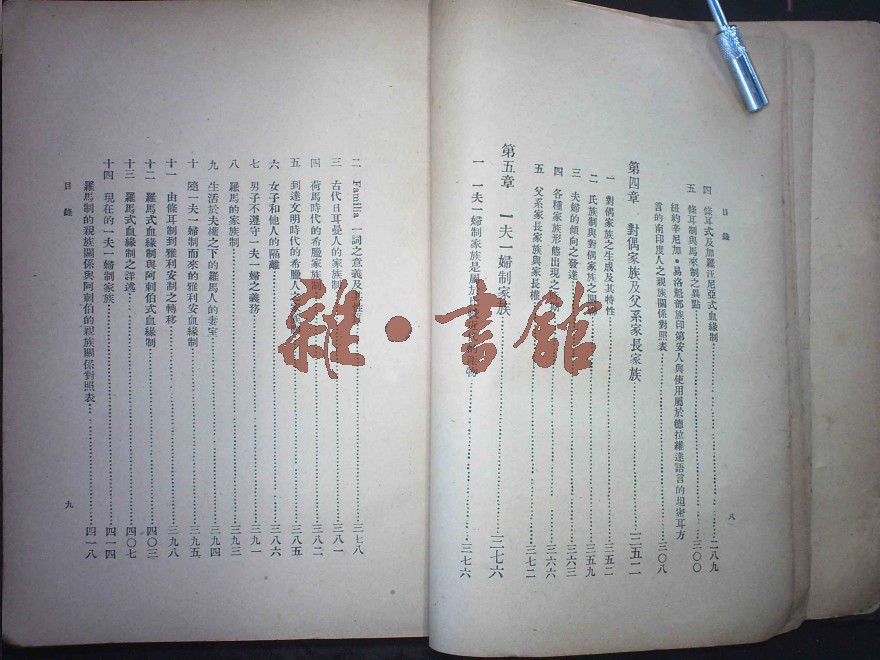 目錄
四 條耳式及加羅汪尼亞式血緣制……二八九
五 條耳制與馬來制之異點……三〇〇
紐約辛尼加•易洛魁部族印第安人與使用屬於德拉維達語言的坦密耳方
言的南印度人之親族關係對照表……三〇八
第四章 對偶家族及父系家長家族……三五二
一 對偶家族之生成及其特性……三五二
二 氏族制與對偶家族之關……三五九
三 夫婦的傾向之發達……三六三
四 各種家族形態出現之……三六六
五 父系家長家族與家長權……三七二
第五章 一夫一婦制家族……三七六
一 一夫一婦制家族是屬於……三七六
八
二 Familia 一詞之意義及……三七八
三 古代日耳曼人的家族制……三八一
四 荷馬時代的希臘家族制……三八二
五 到達文明時代的希臘人之……三八五
六 女子和他人的隔離……三八六
七 男子不遵守一夫一婦之義務……三九一
八 羅馬的家族制……三九三
九 生活於夫權之下的羅馬人的妻室……三九四
十 隨一夫一婦制而來的雅利安血緣制……三九五
十一 由條耳制到雅利安制之轉移……三九八
十二 羅馬式血緣制與阿剌伯式血緣制……四〇三
十三 羅馬式血緣制之詳述……四〇七
十四 現在的一夫一婦制家族……四一四
羅馬制的親族關係與阿剌伯的親族關係對照表……四一八
目錄
九
雜•書館